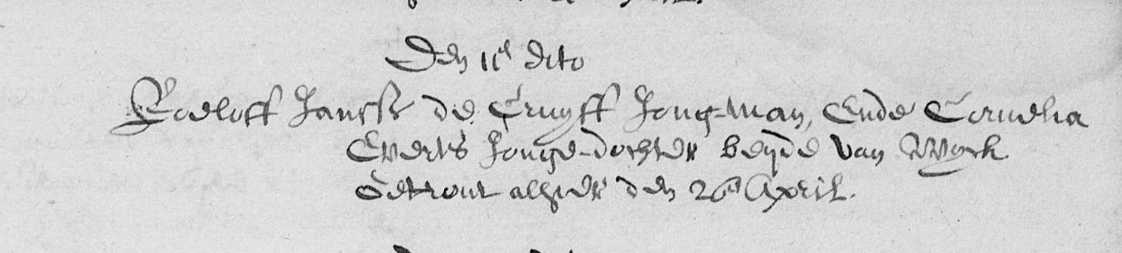 Den 11e dito
Roeloff Janssz de Cruyff Jong-man, Ende Cornelia
Everts Jonge-dochter beyde van Wyck
Getrout alhier den 26n April.